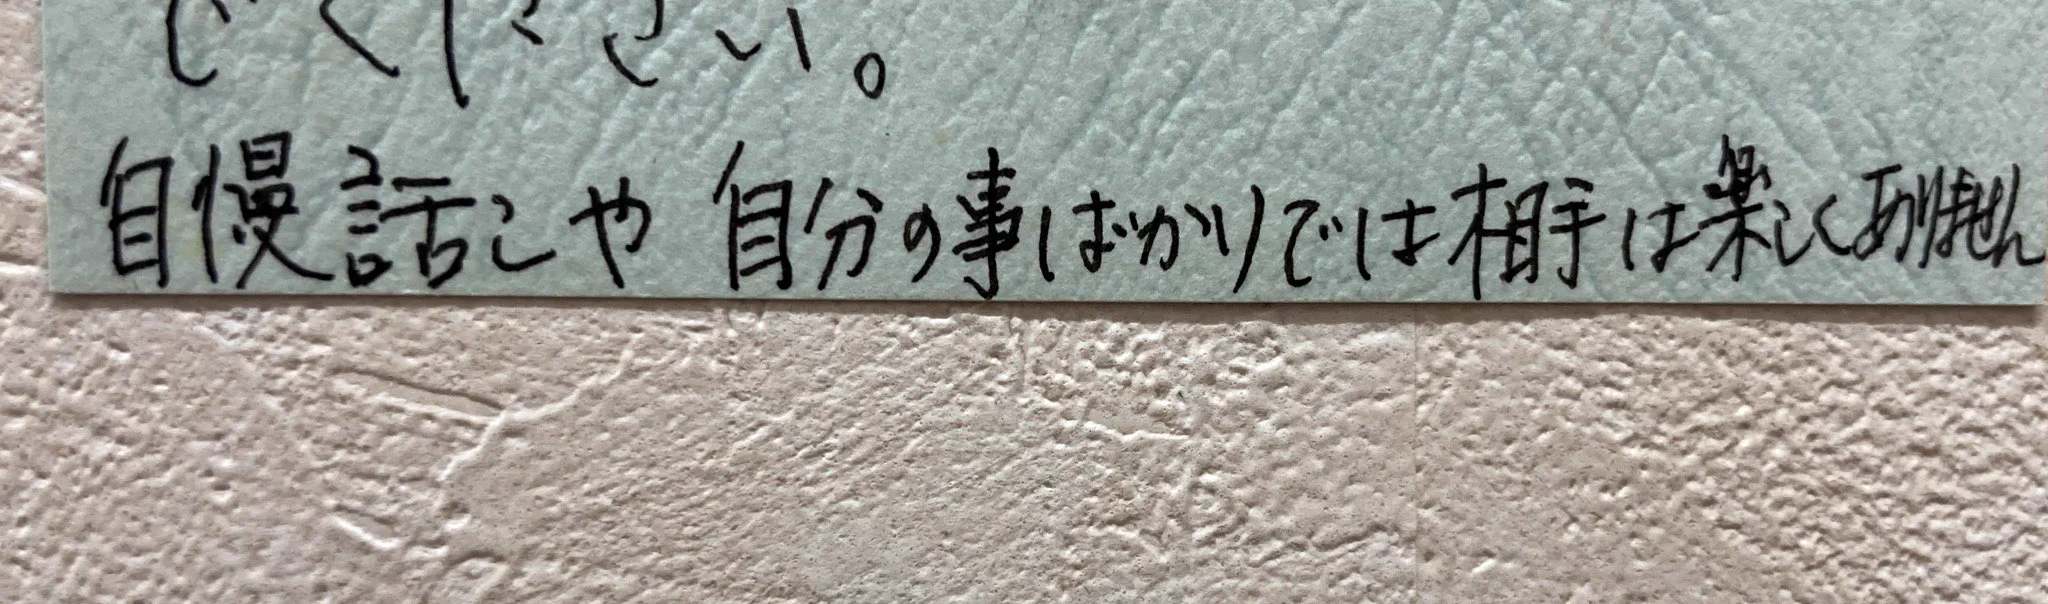 でください。
自慢話しや自分の事ばかりでは相手は楽しくありません